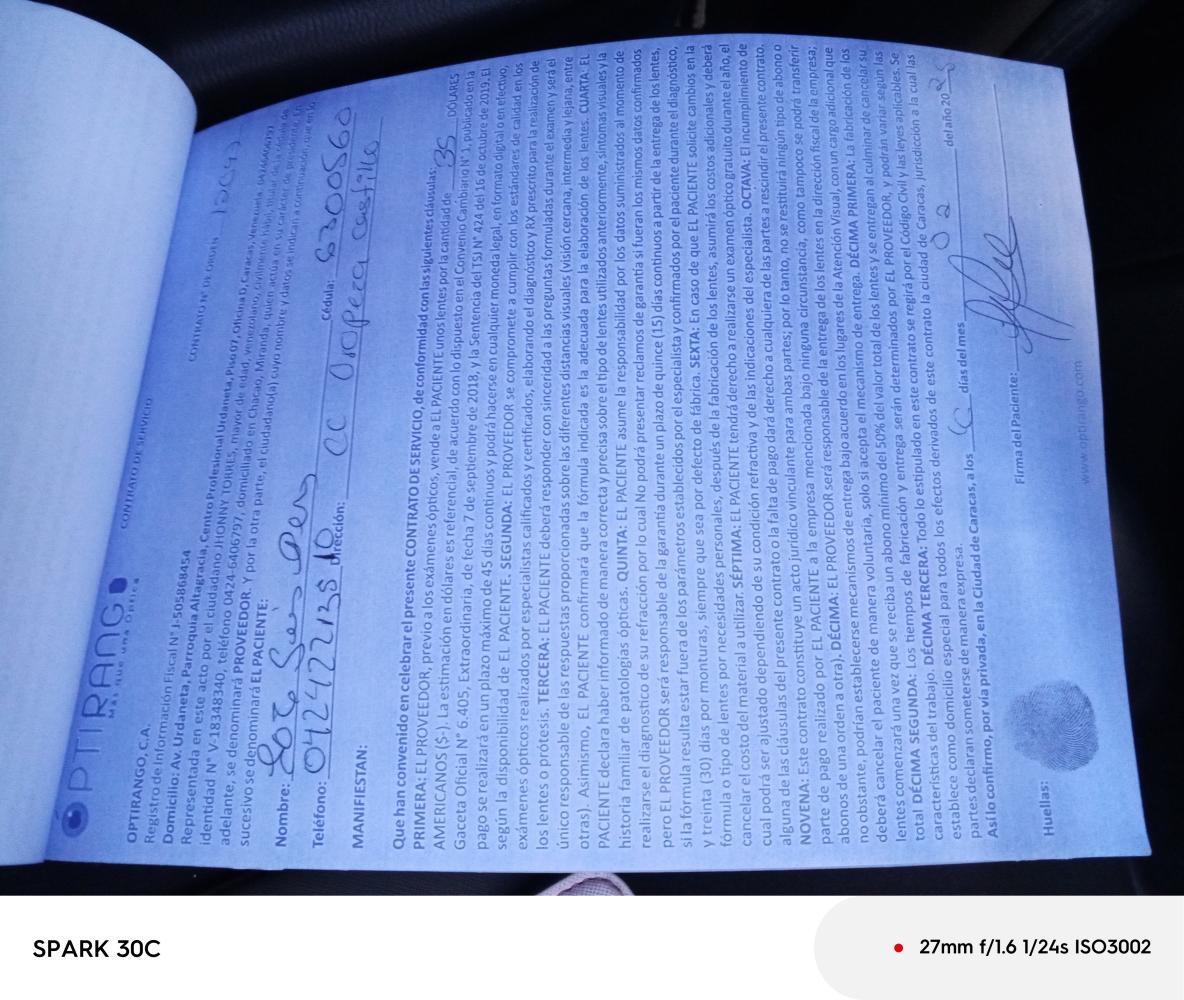 OPTIRANGO
Más que una Óptica
CONTRATO DE SERVICIO
CONTRATO N° DE ORDEN
OPTIRANGO, C.A.
Registro de Información Fiscal N° J-505868454
Domicilio: Av. Urdaneta, Parroquia Altagracia, Centro Profesional Urdaneta, Piso 07, Oficina D, Caracas, Venezuela. 04246406797
Representada en este acto por el ciudadano JHONNY TORRES, mayor de edad, venezolano, civilmente hábil, titular de la cédula de
identidad N° V-18348340, teléfono 0424-6406797, domiciliado en Chacao, Miranda, quien actúa en su carácter de presidente. En
adelante, se denominará PROVEEDOR. Y por la otra parte, el ciudadano(a) cuyo nombre y datos se indican a continuación, que en lo
sucesivo se denominará EL PACIENTE:
Nombre: Cédula: 6300560
Teléfono: 04242213510 Dirección: CC castillo
MANIFIESTAN:
Que han convenido en celebrar el presente CONTRATO DE SERVICIO, de conformidad con las siguientes cláusulas:
PRIMERA: EL PROVEEDOR, previo a los exámenes ópticos, vende a EL PACIENTE unos lentes por la cantidad de 35 DÓLARES
AMERICANOS ($.). La estimación en dólares es referencial, de acuerdo con lo dispuesto en el Convenio Cambiario N°1, publicado en la
Gaceta Oficial N° 6.405, Extraordinaria, de fecha 7 de septiembre de 2018, y la Sentencia del TSJ N° 424 del 16 de octubre de 2019. El
pago se realizará en un plazo máximo de 45 días continuos y podrá hacerse en cualquier moneda legal, en formato digital o efectivo,
según la disponibilidad de EL PACIENTE. SEGUNDA: EL PROVEEDOR se compromete a cumplir con los estándares de calidad en los
exámenes ópticos realizados por especialistas calificados y certificados, elaborando el diagnóstico y RX prescrito para la realización de
los lentes o prótesis. TERCERA: EL PACIENTE deberá responder con sinceridad a las preguntas formuladas durante el examen y será el
único responsable de las respuestas proporcionadas sobre las diferentes distancias visuales (visión cercana, intermedia y lejana, entre
otras). Asimismo, EL PACIENTE confirmará que la fórmula indicada es la adecuada para la elaboración de los lentes. CUARTA: EL
PACIENTE declara haber informado de manera correcta y precisa sobre el tipo de lentes utilizados anteriormente, síntomas visuales y la
historia familiar de patologías ópticas. QUINTA: EL PACIENTE asume la responsabilidad por los datos suministrados al momento de
realizarse el diagnostico de su refracción por lo cual No podrá presentar reclamos de garantía si fueran los mismos datos confirmados
pero EL PROVEEDOR será responsable de la garantía durante un plazo de quince (15) días continuos a partir de la entrega de los lentes,
si la fórmula resulta estar fuera de los parámetros establecidos por el especialista y confirmados por el paciente durante el diagnóstico,
y treinta (30) días por monturas, siempre que sea por defecto de fábrica. SEXTA: En caso de que EL PACIENTE solicite cambios en la
fórmula o tipo de lentes por necesidades personales, después de la fabricación de los lentes, asumirá los costos adicionales y deberá
cancelar el costo del material a utilizar. SÉPTIMA: EL PACIENTE tendrá derecho a realizarse un examen óptico gratuito durante el año, el
cual podrá ser ajustado dependiendo de su condición refractiva y de las indicaciones del especialista. OCTAVA: El incumplimiento de
alguna de las cláusulas del presente contrato o la falta de pago dará derecho a cualquiera de las partes a rescindir el presente contrato.
NOVENA: Este contrato constituye un acto jurídico vinculante para ambas partes; por lo tanto, no se restituirá ningún tipo de abono o
parte de pago realizado por EL PACIENTE a la empresa mencionada bajo ninguna circunstancia, como tampoco se podrá transferir
abonos de una orden a otra). DÉCIMA: EL PROVEEDOR será responsable de la entrega de los lentes en la dirección fiscal de la empresa;
no obstante, podrían establecerse mecanismos de entrega bajo acuerdo en los lugares de la Atención Visual, con un cargo adicional que
deberá cancelar el paciente de manera voluntaria, solo si acepta el mecanismo de entrega. DÉCIMA PRIMERA: La fabricación de los
lentes comenzará una vez que se reciba un abono mínimo del 50% del valor total de los lentes y se entregan al culminar de cancelar su
total DÉCIMA SEGUNDA: Los tiempos de fabricación y entrega serán determinados por EL PROVEEDOR, y podrán variar según las
características del trabajo. DÉCIMA TERCERA: Todo lo estipulado en este contrato se regirá por el Código Civil y las leyes aplicables. Se
establece como domicilio especial para todos los efectos derivados de este contrato la ciudad de Caracas, jurisdicción a la cual las
partes declaran someterse de manera expresa.
Así lo confirmo, por vía privada, en la Ciudad de Caracas, a los días del mes 02 del año 20
Huellas: Firma del Paciente:
www.optirango.com
SPARK 30C
27mm f/1.6 1/24s ISO3002